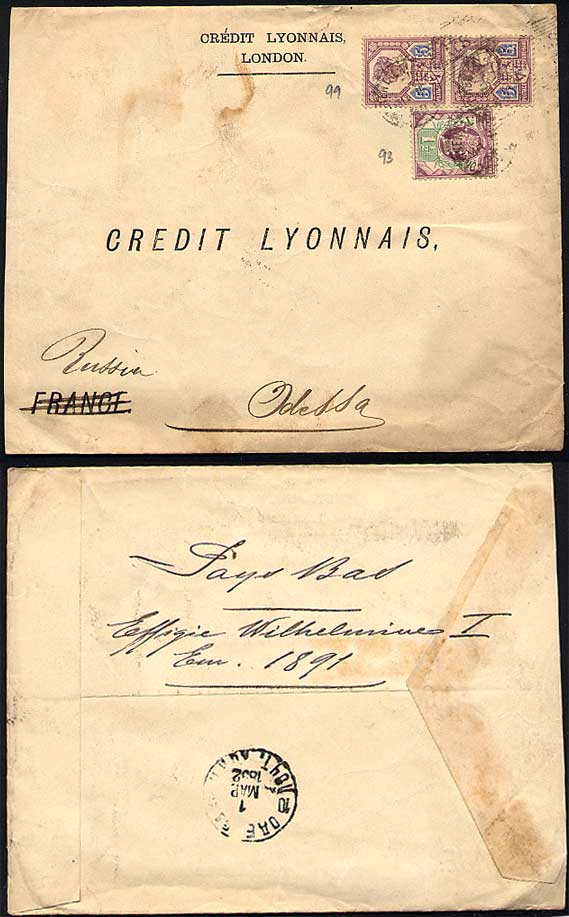 CRÉDIT LYONNAIS,
LONDON.
99
93
CREDIT LYONNAIS,
Russia
FRANCE.
Odessa
Pays Bas
Effigie Wilhelmine I
Em. 1891
1
MAP
1892